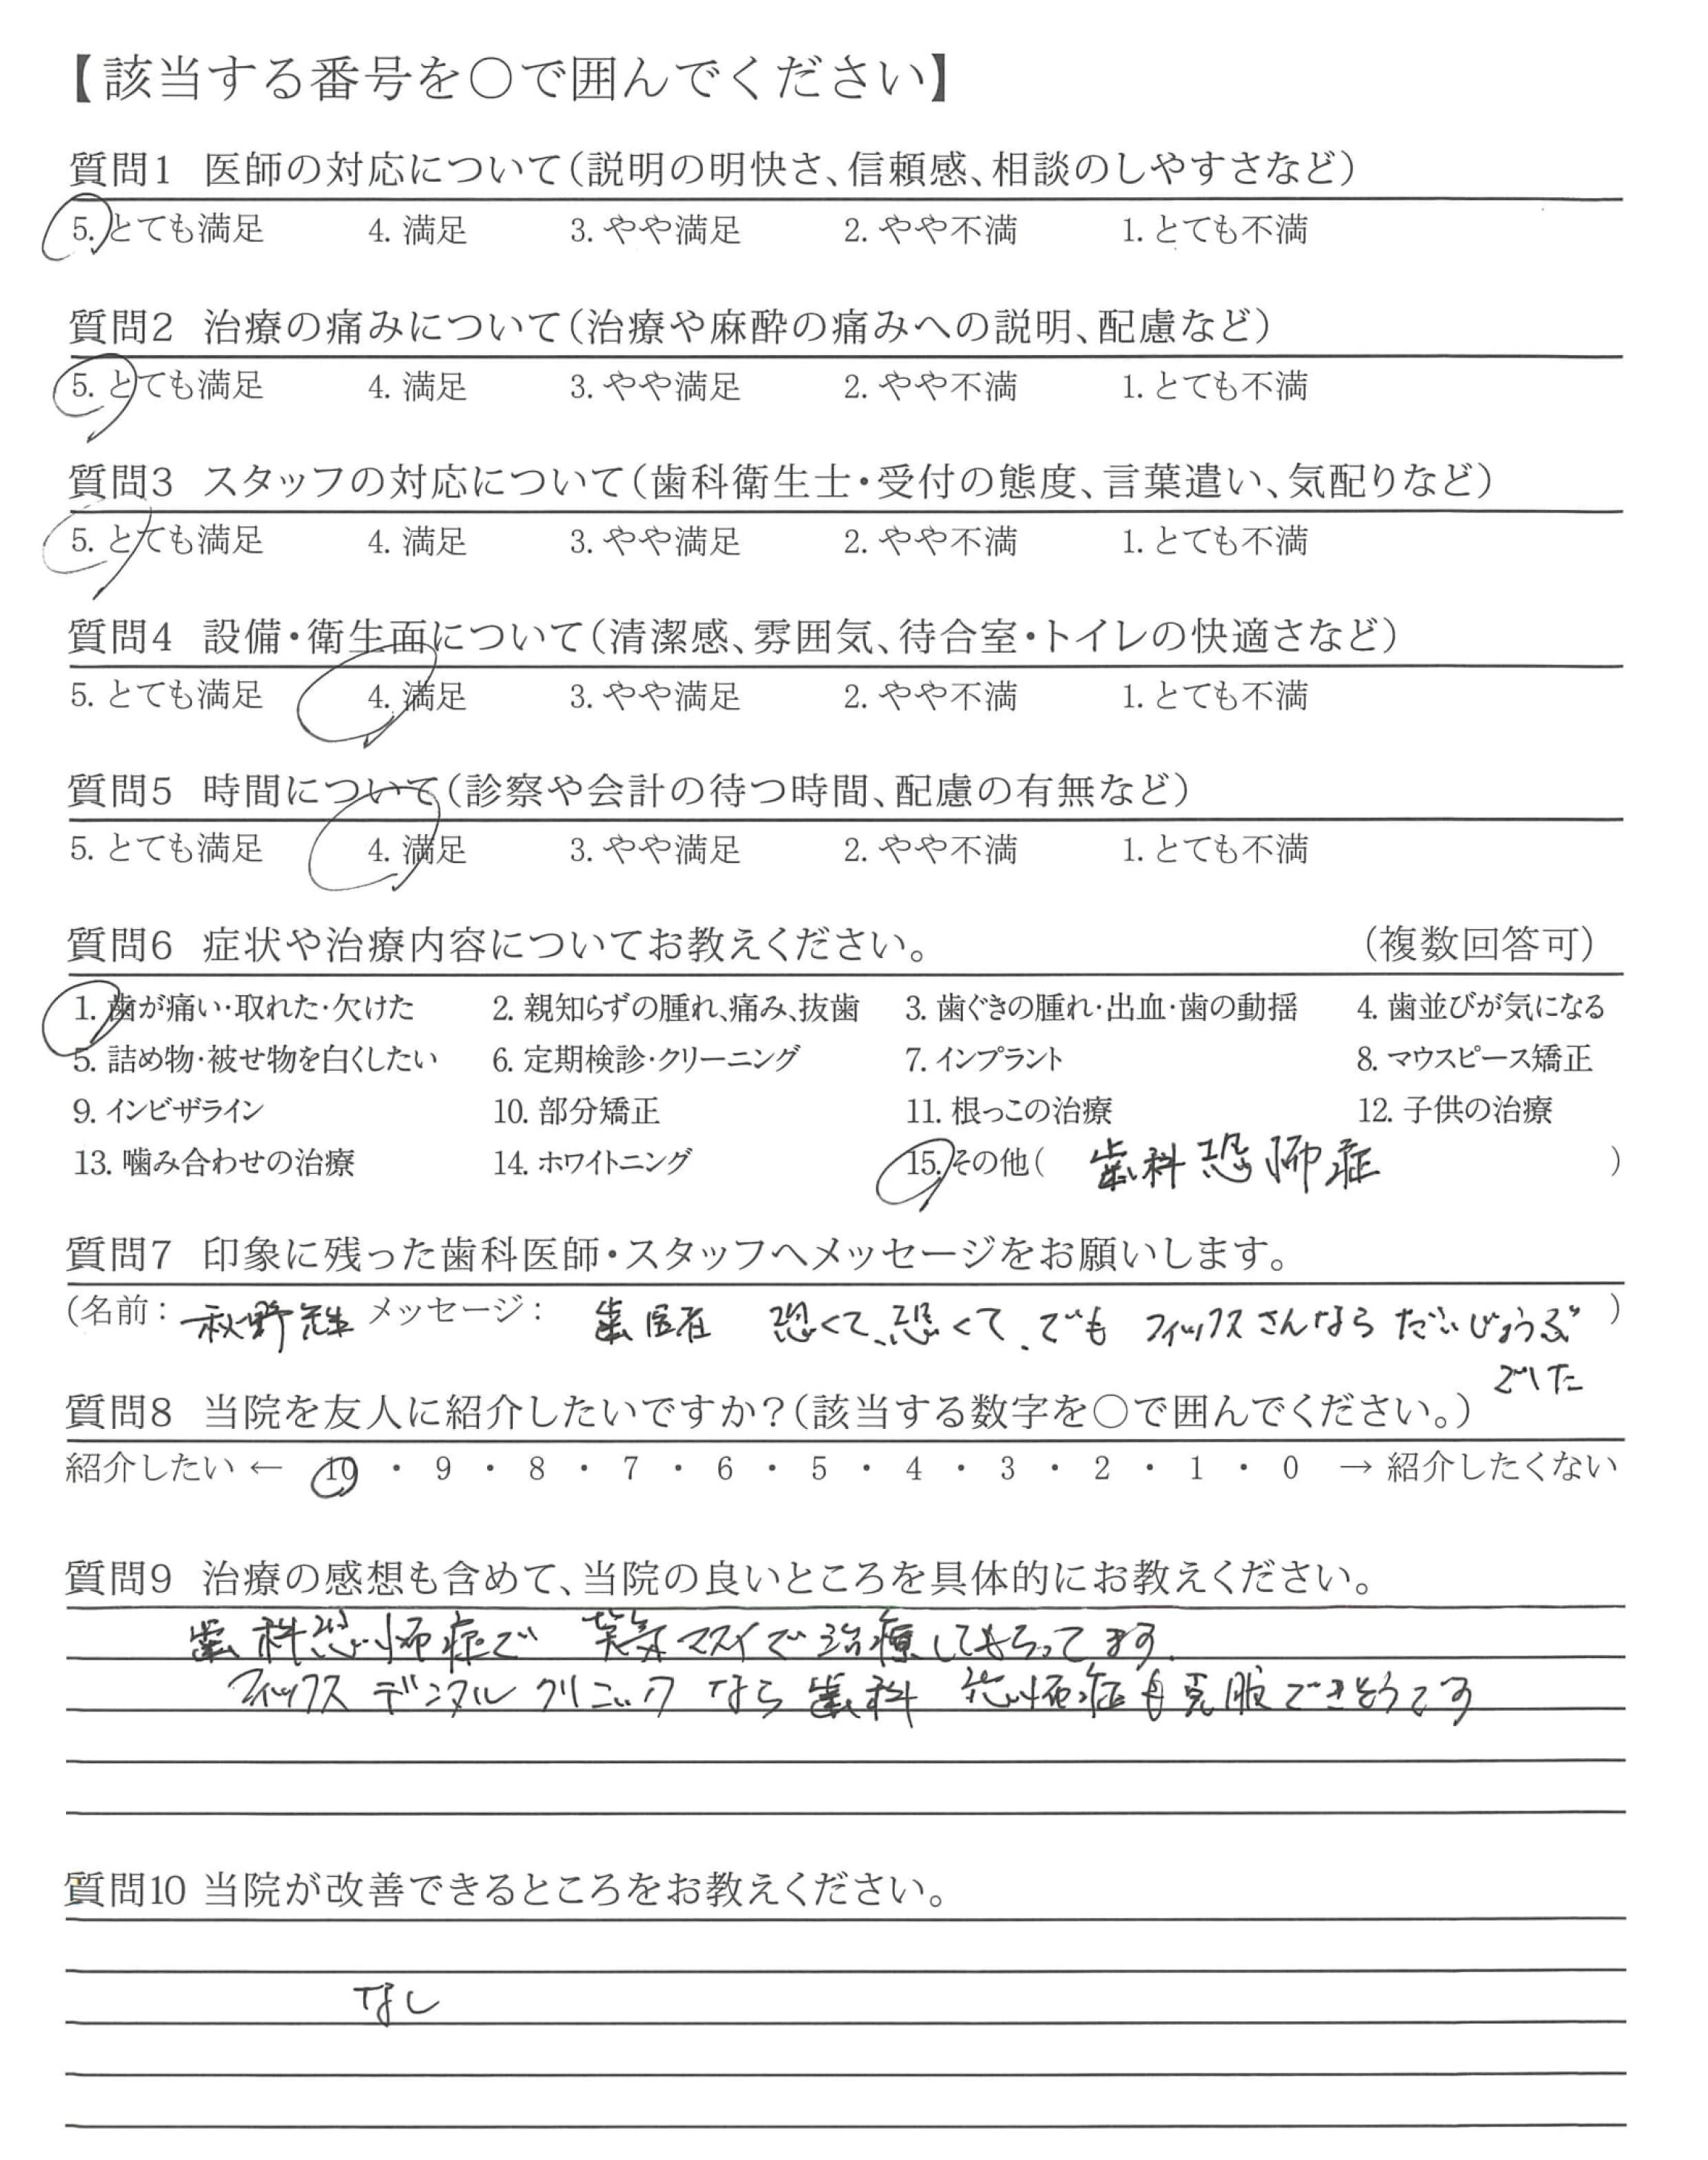 【該当する番号を○で囲んでください】
質問1 医師の対応について(説明の明快さ、信頼感、相談のしやすさなど)
5. とても満足 4. 満足 3. やや満足 2. やや不満 1. とても不満
質問2 治療の痛みについて(治療や麻酔の痛みへの説明、配慮など)
5. とても満足 4. 満足 3. やや満足 2. やや不満 1. とても不満
質問3 スタッフの対応について(歯科衛生士・受付の態度、言葉遣い、気配りなど)
5. とても満足 4. 満足 3. やや満足 2. やや不満 1. とても不満
質問4 設備・衛生面について(清潔感、雰囲気、待合室・トイレの快適さなど)
5. とても満足 4. 満足 3. やや満足 2. やや不満 1. とても不満
質問5 時間について(診察や会計の待つ時間、配慮の有無など)
5. とても満足 4. 満足 3. やや満足 2. やや不満 1. とても不満
質問6 症状や治療内容についてお教えください。 (複数回答可)
1. 歯が痛い・取れた・欠けた 2. 親知らずの腫れ、痛み、抜歯 3. 歯ぐきの腫れ・出血・歯の動揺 4. 歯並びが気になる
5. 詰め物・被せ物を白くしたい 6. 定期検診・クリーニング 7. インプラント 8. マウスピース矯正
9. インビザライン 10. 部分矯正 11. 根っこの治療 12. 子供の治療
13. 噛み合わせの治療 14. ホワイトニング 15. その他( 歯科恐怖症 )
質問7 印象に残った歯科医師・スタッフへメッセージをお願いします。
(名前: 秋野 メッセージ: 歯医者 恐くて、恐くて、でも フィックスさんなら だいじょうぶ )
でした
質問8 当院を友人に紹介したいですか?(該当する数字を○で囲んでください。)
紹介したい ← 10 ・ 9 ・ 8 ・ 7 ・ 6 ・ 5 ・ 4 ・ 3 ・ 2 ・ 1 ・ 0 → 紹介したくない
質問9 治療の感想も含めて、当院の良いところを具体的にお教えください。
歯科恐怖症で 笑気マスイで治療してもらってます。
フィックス デンタル クリニック なら 歯科 恐怖症も克服できそうです
質問10 当院が改善できるところをお教えください。
なし